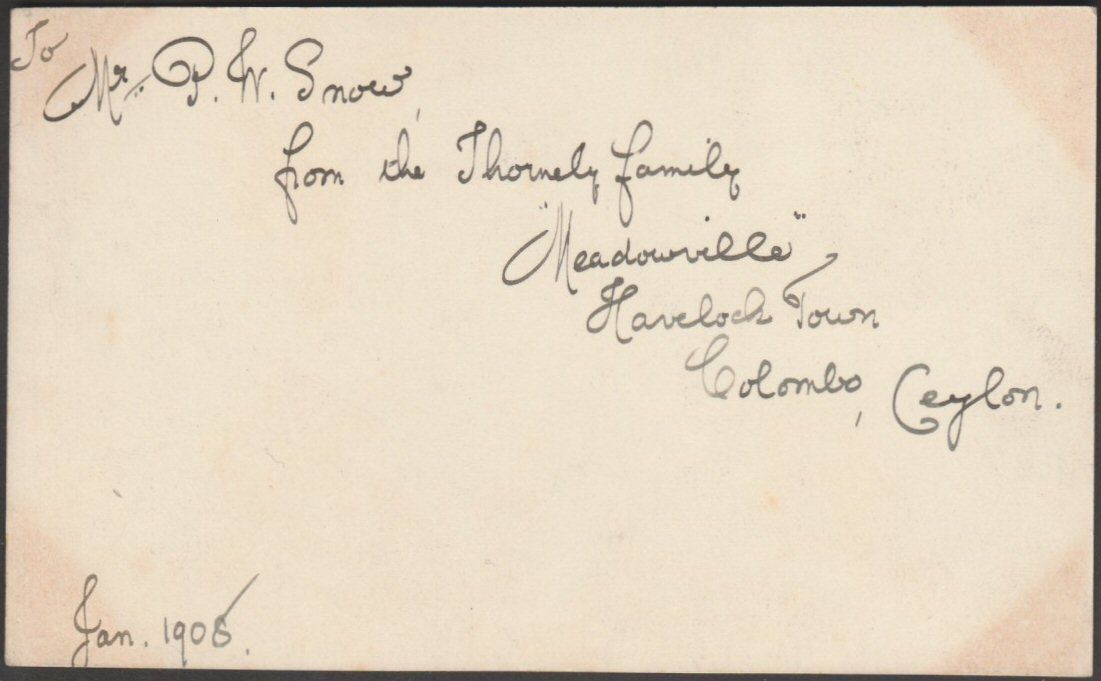 To
Mr. P. W. Snow,
from the Thornely family
"Meadowville",
Havelock Town
Colombo, Ceylon.
Jan. 1908.